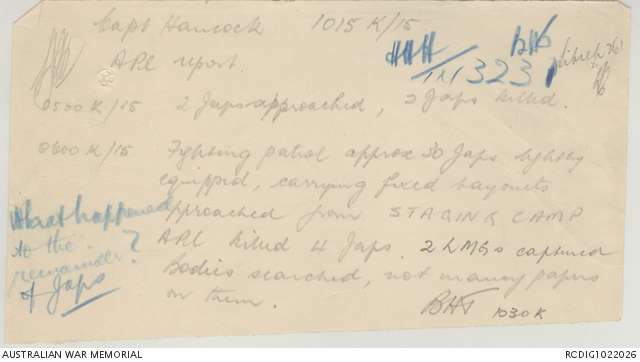 Capt Hancock 1015 K/15
APL report.
HHH BHG
1/1 323
0500 K/15 2 Japs approached, 2 Japs killed.
0600 K/15 Fighting patrol approx 30 Japs lightly
equipped, carrying fixed bayonets
approached from STAGING CAMP
APL killed 4 Japs. 2 LMGs captured
Bodies searched, not many papers
on them.
BHT 1030 K
What happened
to the
remainder?
of Japs
AUSTRALIAN WAR MEMORIAL
RCDIG1022026